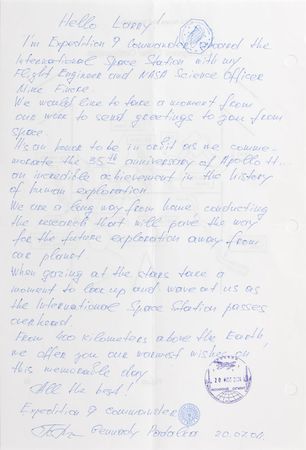 Hello Larry!
I'm Expedition 9 Commander aboard the
International Space Station with my
Flight Engineer and NASA Science Officer
Mike Fincke.
We would like to take a moment from
our work to send greetings to you from
space.
It's an honor to be in orbit as we comme-
morate the 35th anniversary of Apollo 11...
an incredible achievement in the history
of human exploration.
We are a long way from home, conducting
the research that will pave the way
for the future exploration away from
our planet.
When gazing at the stars take a
moment to look up and wave at us as
the International Space Station passes
overhead.
From 400 kilometers above the Earth,
we offer you our warmest wishes on
this memorable day
All the best!
Expedition 9 commander
Gennady Padalka 20.07.04